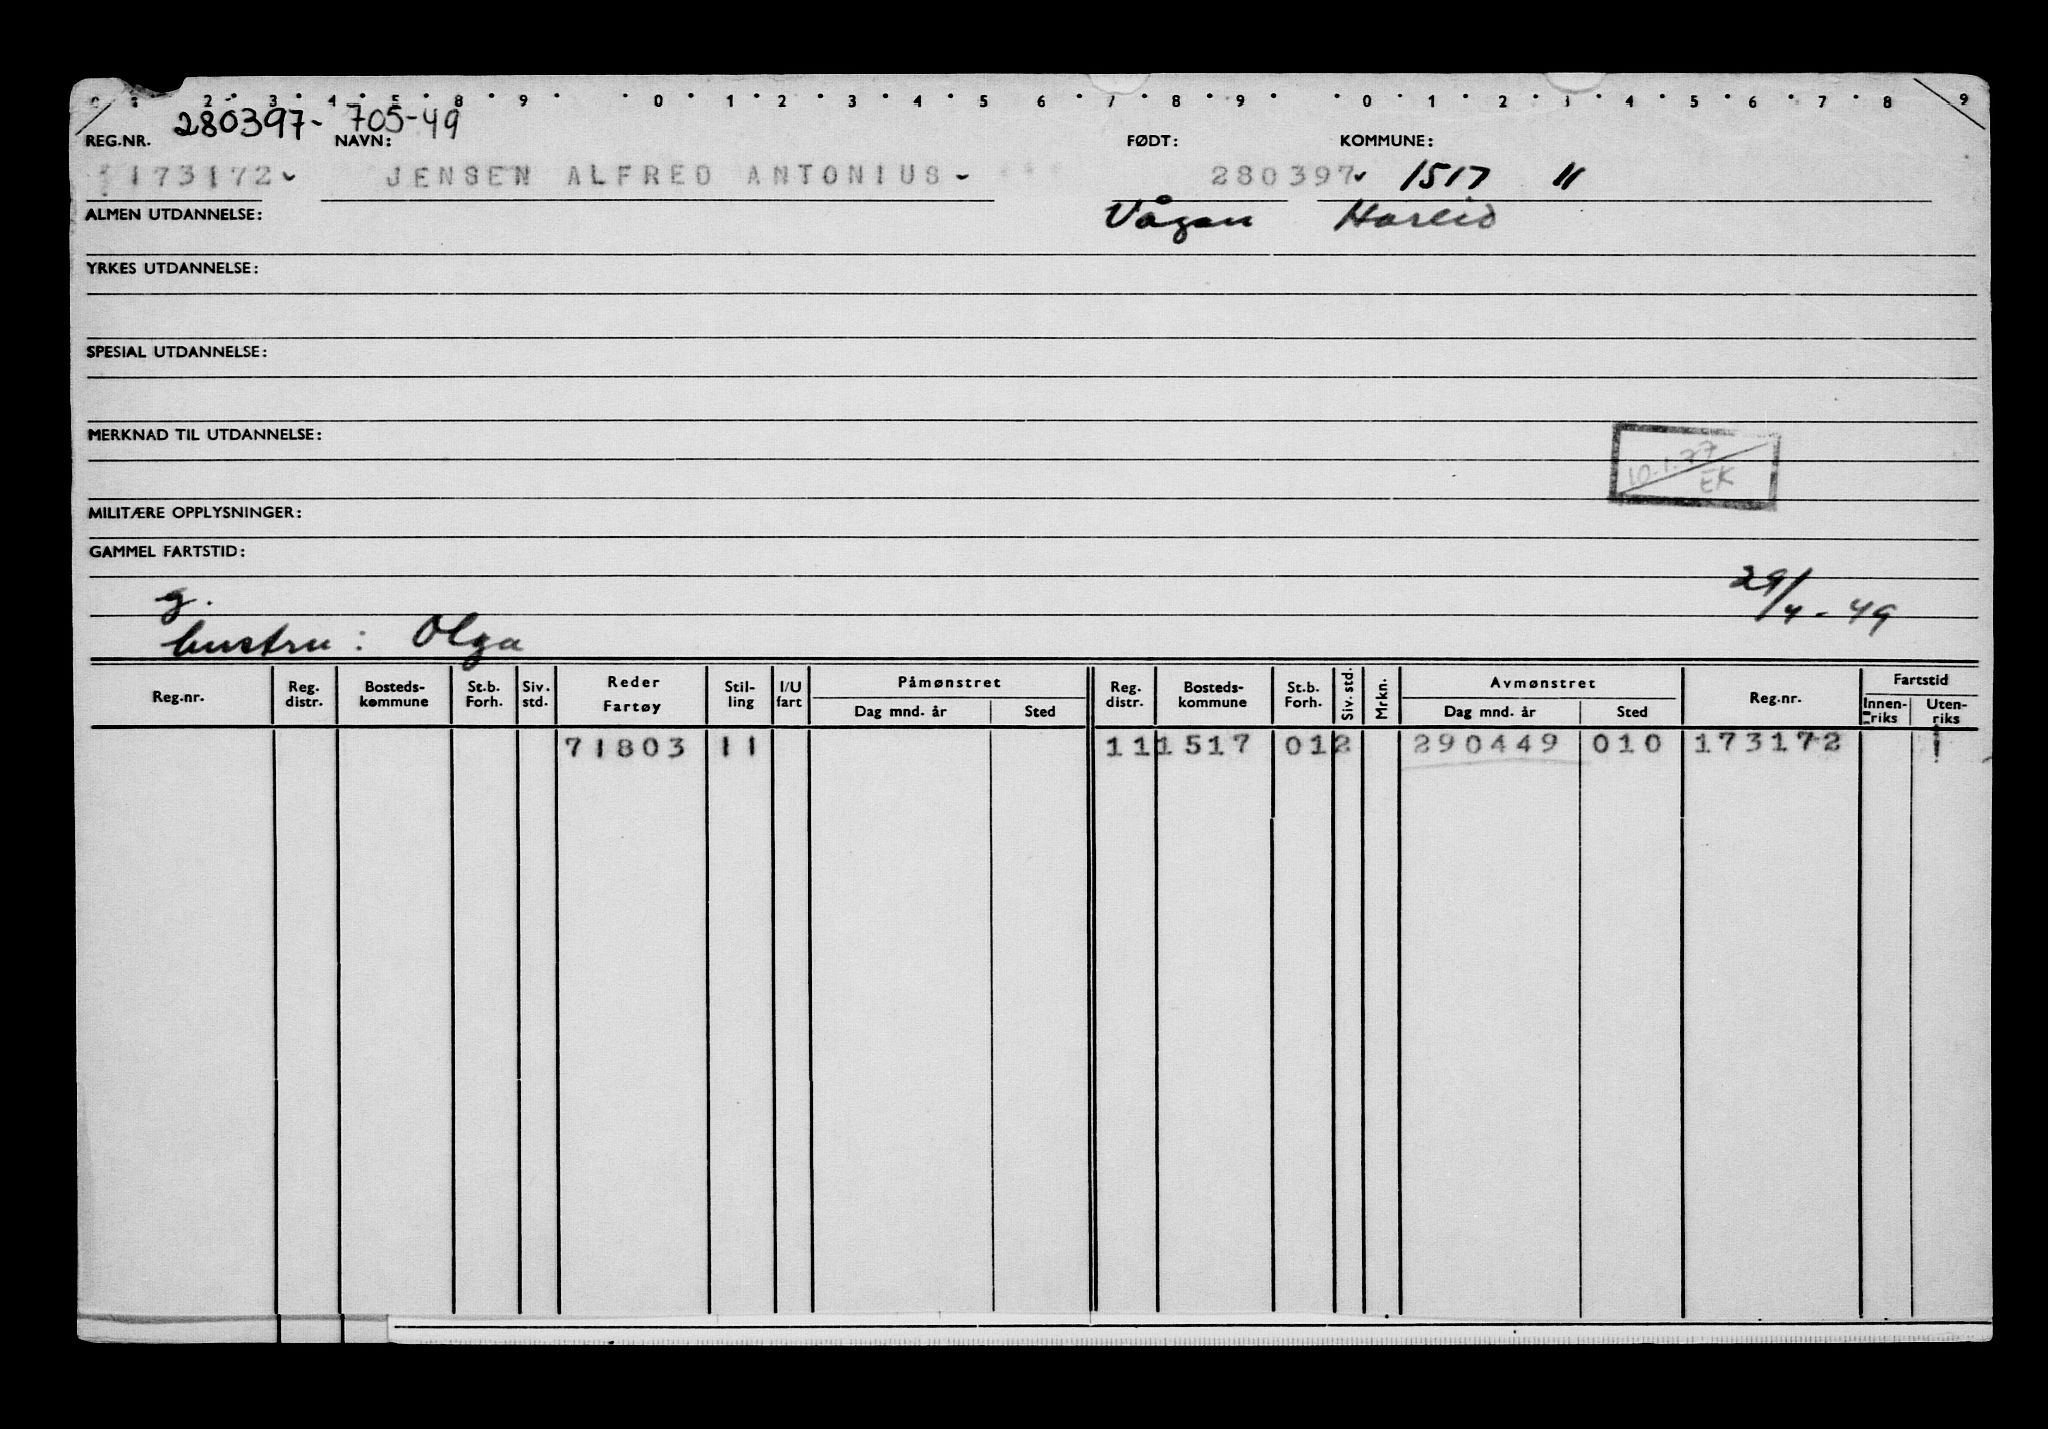 0 1 2 3 4 5 8 9 0 1 2 3 4 5 6 7 8 9 0 1 2 3 4 5 6 7 8 9
280397- 705-49
REG.NR. NAVN: FØDT: KOMMUNE:
173172 JENSEN ALFRED ANTONIUS 280397 1517 11
ALMEN UTDANNELSE: Vågan Hareid
YRKES UTDANNELSE:
SPESIAL UTDANNELSE:
MERKNAD TIL UTDANNELSE:
10.1.77
EK
MILITÆRE OPPLYSNINGER:
GAMMEL FARTSTID:
g. 29/4-49
hustru: Olga
Reg.nr. Reg. distr. Bosteds- kommune St.b. Forh. Siv. std. Reder Fartøy Stil- ling I/U fart Påmønstret Dag mnd. år Sted Reg. distr. Bosteds- kommune St.b. Forh. Siv. std. Mrkn. Avmønstret Dag mnd. år Sted Reg.nr. Fartstid Innen- riks Uten- riks
71803 11 11 1517 01 2 290449 010 173172 1